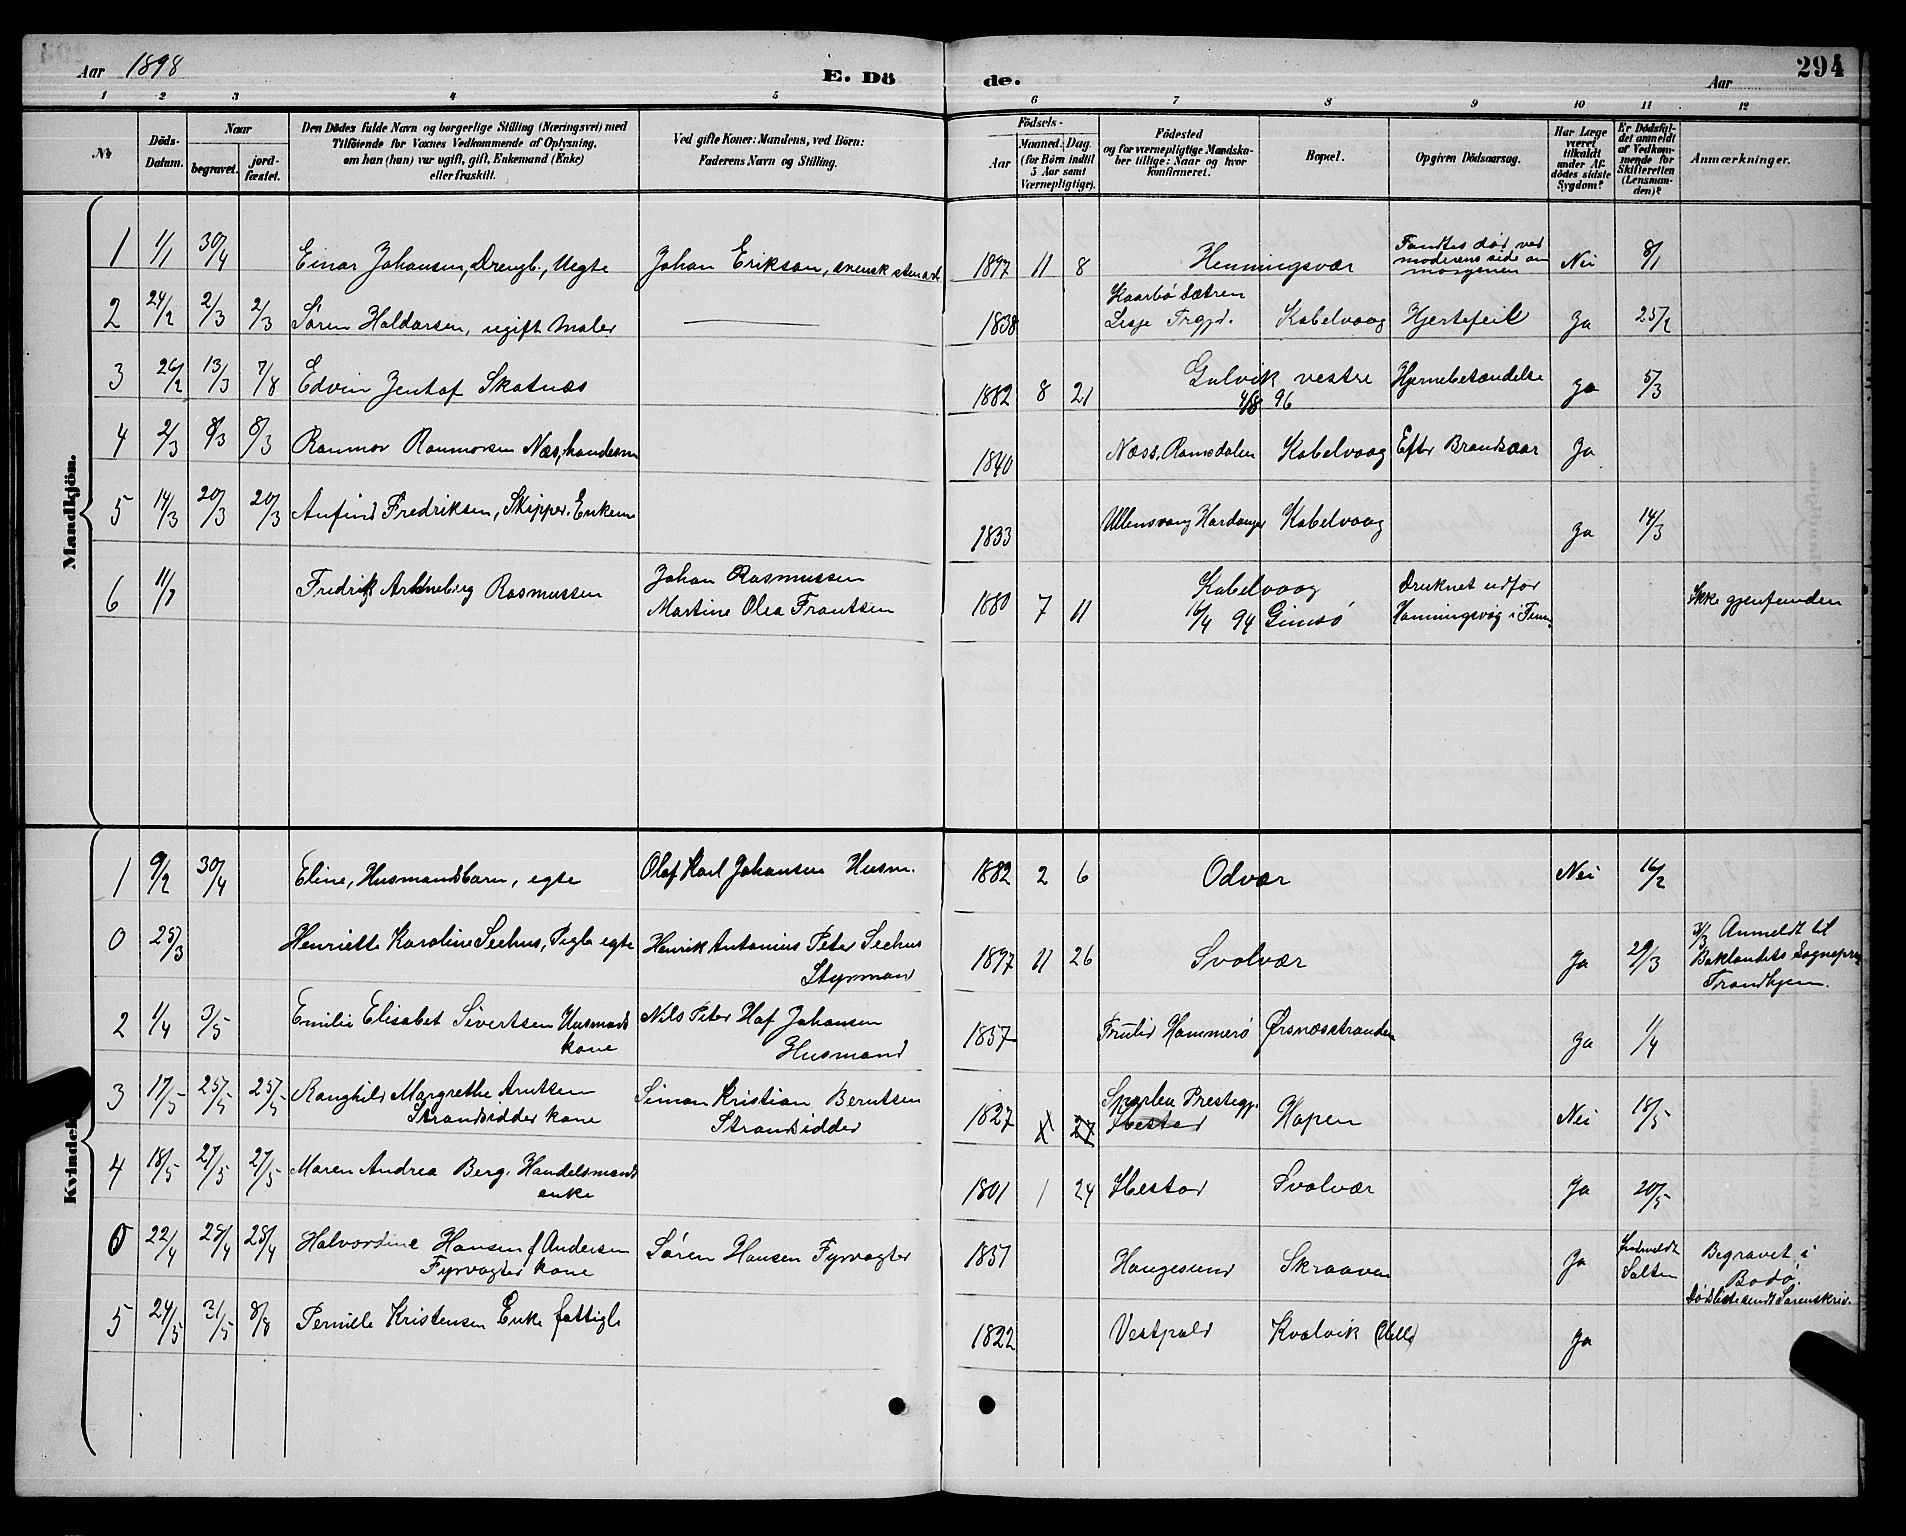 Aar 1898 E. Dö de. Aar 294
1 2 3 4 5 6 7 8 9 10 11 12
№ Döds-Datum. Naar begravet. jord-fæstet. Den Dödes fulde Navn og borgerlige Stilling (Næringsvei) med Tilföiende for Voxnes Vedkommende af Oplysning, om han (hun) var ugift, gift, Enkemand (Enke) eller fraskilt. Ved gifte Koner: Mandens, ved Börn: Faderens Navn og Stilling. Födsels- Aar Maaned. Dag. (for Börn indtil 5 Aar samt Værnepligtige). Födested og for værnepligtige Mandskaber tillige: Naar og hvor konfirmeret. Bopæl. Opgiven Dödsaarsag. Har Læge været tilkaldt under Afdödes sidste Sygdom? Er Dödsfaldet anmeldt af Vedkommende for Skifteretten (Lensmanden)? Anmærkninger.
Mandkjön.
1 1/1 30/4 Einar Johansen, Drengb., Uegte Johan Erikson, svensk 1897 11 8 Henningsvær Fandtes död ved moderens side om morgenen Nei 8/1
2 24/2 2/3 2/3 Sören Haldorsen, ugift Maler 1838 Lesje Kabelvaag Hjertefeil Ja 25/2
3 26/2 13/3 7/8 Edvin Jentof Skotnæs 1882 8 21 Gulvik vestre 4/8 96 Hjernebetændelse Ja 5/3
4 2/3 8/3 8/3 Ranmor Ranmorsen Næs, 1840 Næss, Romsdalen Kabelvaag Efter Brandsaar Ja
5 14/3 20/3 20/3 Anfind Fredriksen, Skipper. Enkem 1833 Ullensvang Hardanger Kabelvaag Ja 14/3
6 11/7 Fredrik Rasmussen Johan Rasmussen
Martine Olea Frantsen 1880 7 11 Kabelvaag
16/4 94 Gimsö Druknet udfor
Honningsvåg i Finm. Ikke gjenfunden
Kvindekjön.
1 9/2 30/4 Eline, Husmandsbarn, egte Olaf Karl Johansen Husm. 1882 2 6 Odvær Nei 16/2
0 25/3 Henriette Karoline Seehus, Pigb egte Henrik Antonius Peter Seehus
Styrmand 1897 11 26 Svolvær Ja 29/3 31/3 Anmeldt til
Baklandets Sognepræ
Trondhjem.
2 1/4 3/5 Emilie Elisabet Sivertsen Husmands
kone Nils Peter Hof Johansen
Husmand 1857 Hammerö Örsnæsstranden Ja 1/4
3 17/5 25/5 25/5 Ranghild Margrethe Arntsen
Strandsidder kone Simon Kristian Berntsen
Strandsidder 1827 X 27 Prestegj.
Ibestad Hopen Nei 18/5
4 18/5 27/5 27/5 Maren Andrea Berg. Handelsmands
enke 1801 1 24 Ibestad Svolvær Ja 20/5
0 22/4 28/4 28/4 Halvordine Hansen f Andersen
Fyrvogter kone Sören Hansen Fyrvogter 1851 Haugesund Skraaven Ja Indmeldt
Salten Begravet i
Bodö.
Dödsliste sendt Sorenskriv.
5 24/5 31/5 8/8 Pernille Kristensen Enke fattigl 1822 Vestpold Kvalvik Ja